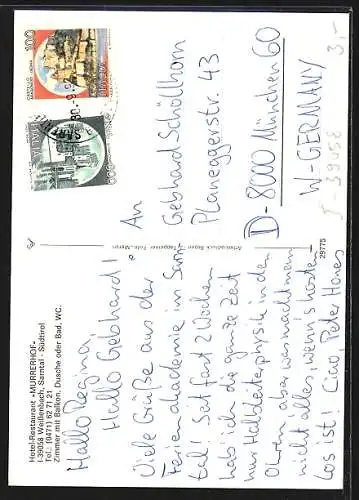 Hotel-Restaurant »MURRERHOF«
I-39058 Weißenbach, Sarntal - Südtirol
Tel: (0471) 62 71 21
Zimmer mit Balkon, Dusche oder Bad, WC.
Hallo Regina,
Hallo Gebhard!
Viele Grüße aus der
Ferienakademie im Sarn-
tal! Seit fast 2 Wochen
hab ich die ganze Zeit
nur Halbleiterphysik in den
Ohren, aber was macht man
nicht alles, wenn's kosten-
los ist! Ciao Peter
29775
An
Gebhard Schöllhorn
Planeggerstr. 43
D-8000 München 60
W-GERMANY
ITALIA
100
I-39058
3,-